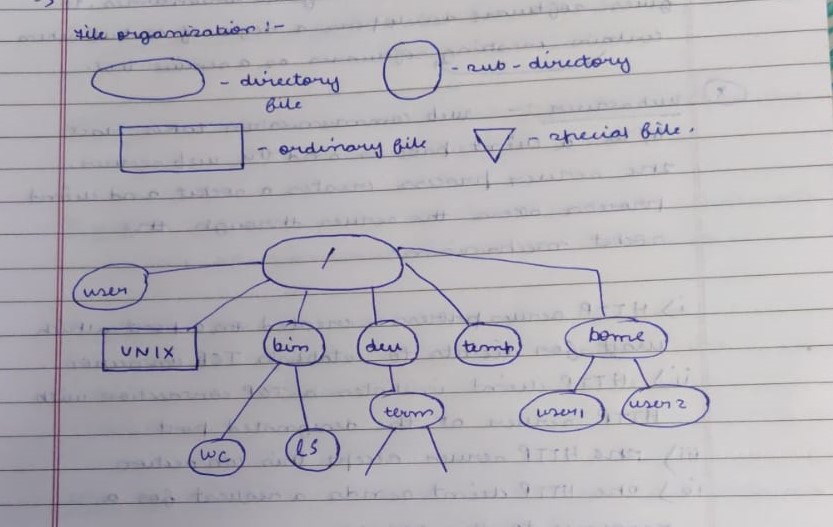 File organization :-
- directory file
- sub-directory
- ordinary file
- special file.
/
user
UNIX
bin
dev
temp
home
term
user1
user2
WC
LS